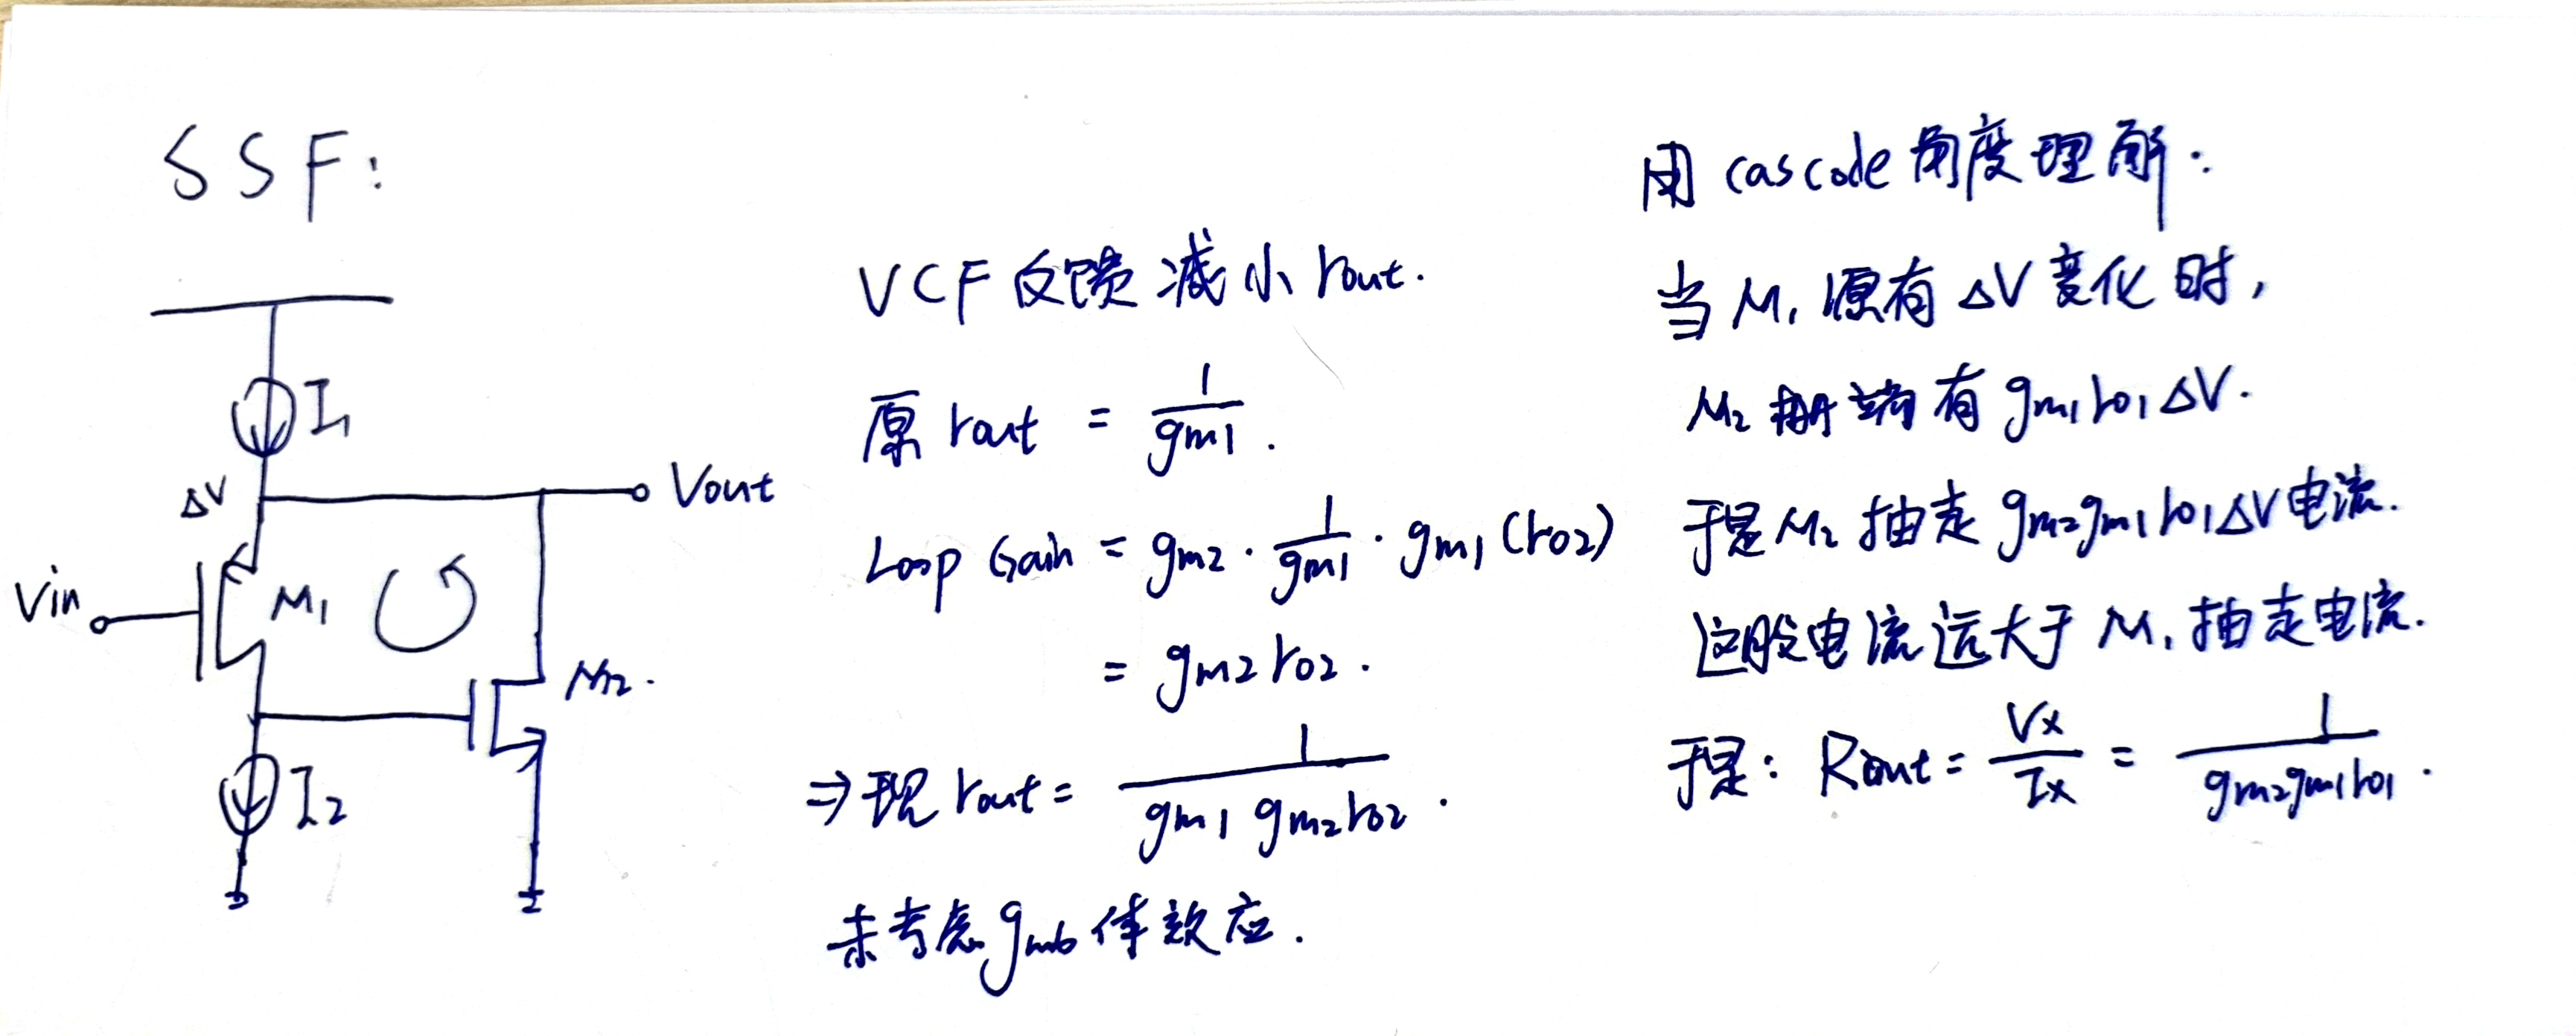 SSF:
I₁
ΔV
Vout
Vin
M₁
M₂.
I₂
VCF 反馈 减小 rout.
原 rout = 1/gm1.
Loop Gain = gm2 · 1/gm1 · gm1 (ro2)
= gm2 ro2.
⇒ 现 rout = 1/(gm1 gm2 ro2).
未考虑 gmb 体效应.
用 cascode 角度理解:
当 M₁ 源有 ΔV 变化时,
M₂ 栅端有 gm1 ro1 ΔV.
于是 M₂ 抽走 gm2 gm1 ro1 ΔV 电流.
这股电流远大于 M₁ 抽走电流.
于是: Rout = Vx/Ix = 1/(gm2 gm1 ro1).